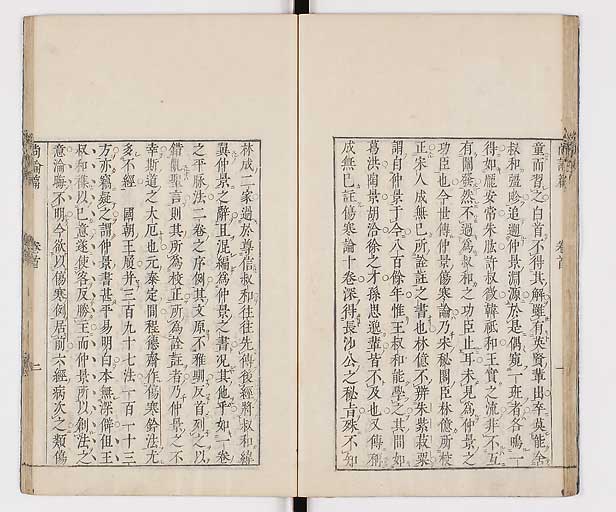 尚論篇
卷首
一
童而習之白首不得其解雖有英賢輩出卒莫能舍
叔和疆畛追遡仲景淵源於是偶窺一斑者各鳴一
得如龐安常朱肱許叔微韓祗和王實之流非不互
有闡發然不過為叔和之功臣止耳未見為仲景之
功臣也今世傳仲景傷寒論乃宋秘閣臣林億所校
正宋人成無已所詮註之書也林億不辨朱紫菽粟
謂自仲景于今八百餘年惟王叔和能學之其間如
葛洪陶景胡洽徐之才孫思邈輩皆不及也又傳稱
成無已註傷寒論十卷深得長沙公之秘旨殊不知
林成二家過於尊信叔和往往先傳後經將叔和緯
翼仲景之辭且混編為仲景之書况其他乎如一卷
之平脉法二卷之序例其文原不雅馴反首列之以
錯亂聖言則其所為校正所為詮註者乃仲景之不
幸斯道之大厄也元泰定間程德齋作傷寒鈐法尤
多不經 國朝王履并三百九十七法一百一十三
方亦竊疑之謂仲景書甚平易明白本無深僻但王
叔和雜以已意遂使客反勝主而仲景所以創法之
意淪晦不明今欲以傷寒例居前六經病次之類傷
尚論篇
卷首
二